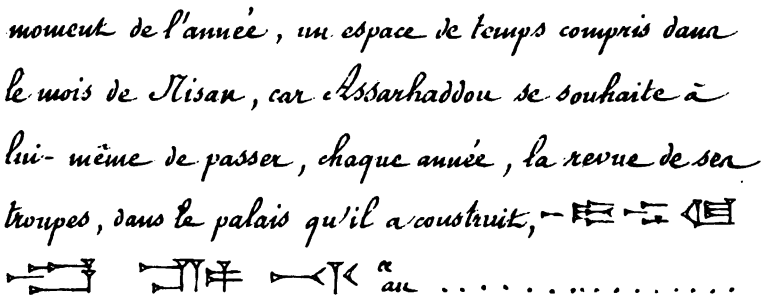 moment de l'année, un espace de temps compris dans
le mois de Nisan, car Assarhaddon se souhaite à
lui-même de passer, chaque année, la revue de ses
troupes, dans le palais qu'il a construit,